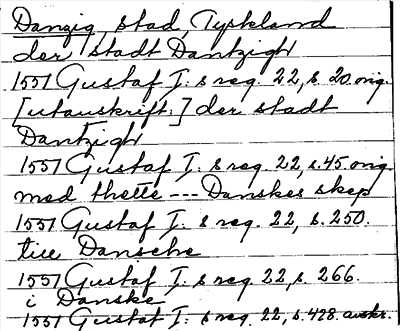 Danzig, stad, Tyskland
der stadt Dantzigh
1551 Gustaf I: s reg. 22, s. 20. orig.
[utanskrift:] der stadt
Dantzigh
1551 Gustaf I: s reg. 22, s. 45. orig.
med thette --- Danskes skep
1551 Gustaf I: s reg. 22, s. 250.
till Dansche
1551 Gustaf I: s reg. 22, s. 266.
i Danske
1551 Gustaf I: s reg. 22, s. 428. avskr.